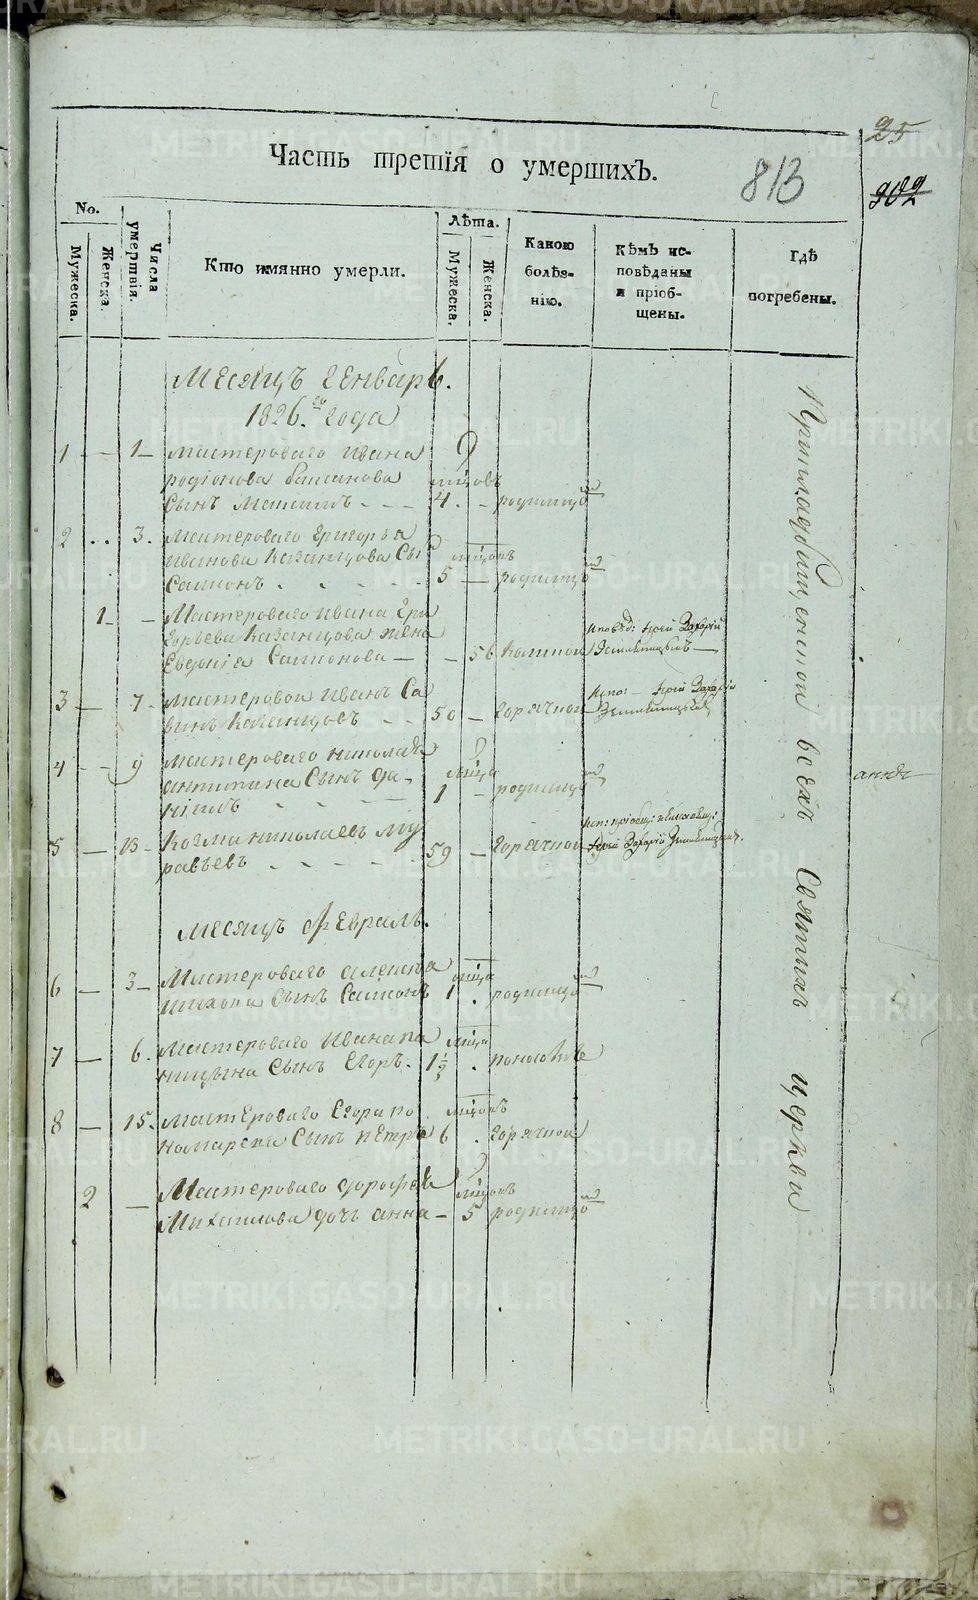 25
902
813
Часть третія о умершихъ.
No.
Мужеска.
Женска.
Числа умертвія.
Кто имянно умерли.
Лѣта.
Мужеска.
Женска.
Какою болѣз-
нію.
Кѣмъ ис-
повѣданы
и пріоб-
щены.
Гдѣ
погребены.
Месяцъ Генварь.
1826.го года
1 - - 1 - мастероваго Ивана
родіонова
сынъ Максимъ - - - 4 . - родимцо
2 . . 3. мастероваго Григорья
Иванова Казанцова сы мцовъ
Самсонъ . . - 5 - родимцо
1 - - Мастероваго Ивана Гри
горьева Казанцова жена
Евдокіа Самсонова - - 56 Іерей Захарій
3 - 7 - мастеровои Иванъ Са
винъ Казанцовъ - - 50 - горячкои испо: - Іерей Захарій
4 - - 9 мастероваго николая
антипина Сынъ да- мца
ніилъ - - - 1 - родимцо
5 - 13 - Козма николаевъ му
равьевъ . - - . 59 - горячкои Іерей Захарій
месяцъ Февраль.
6 - 3 - Мастероваго алексѣа мца
сынъ Самсонъ 1 . родимцо
7 - 6. мастероваго Ивана па мца
ницына Сынъ Егоръ. 1½ . поносомъ
8 - 15. мастероваго Егора по мцовъ
номарева Сынъ петръ 6 . горячкои
2 - Мастероваго дорофея мцовъ
Михаилова дочь анна - 5 родимцо
При кладбищенской всехъ Святыхъ церкви
METRIKI.GASO-URAL.RU